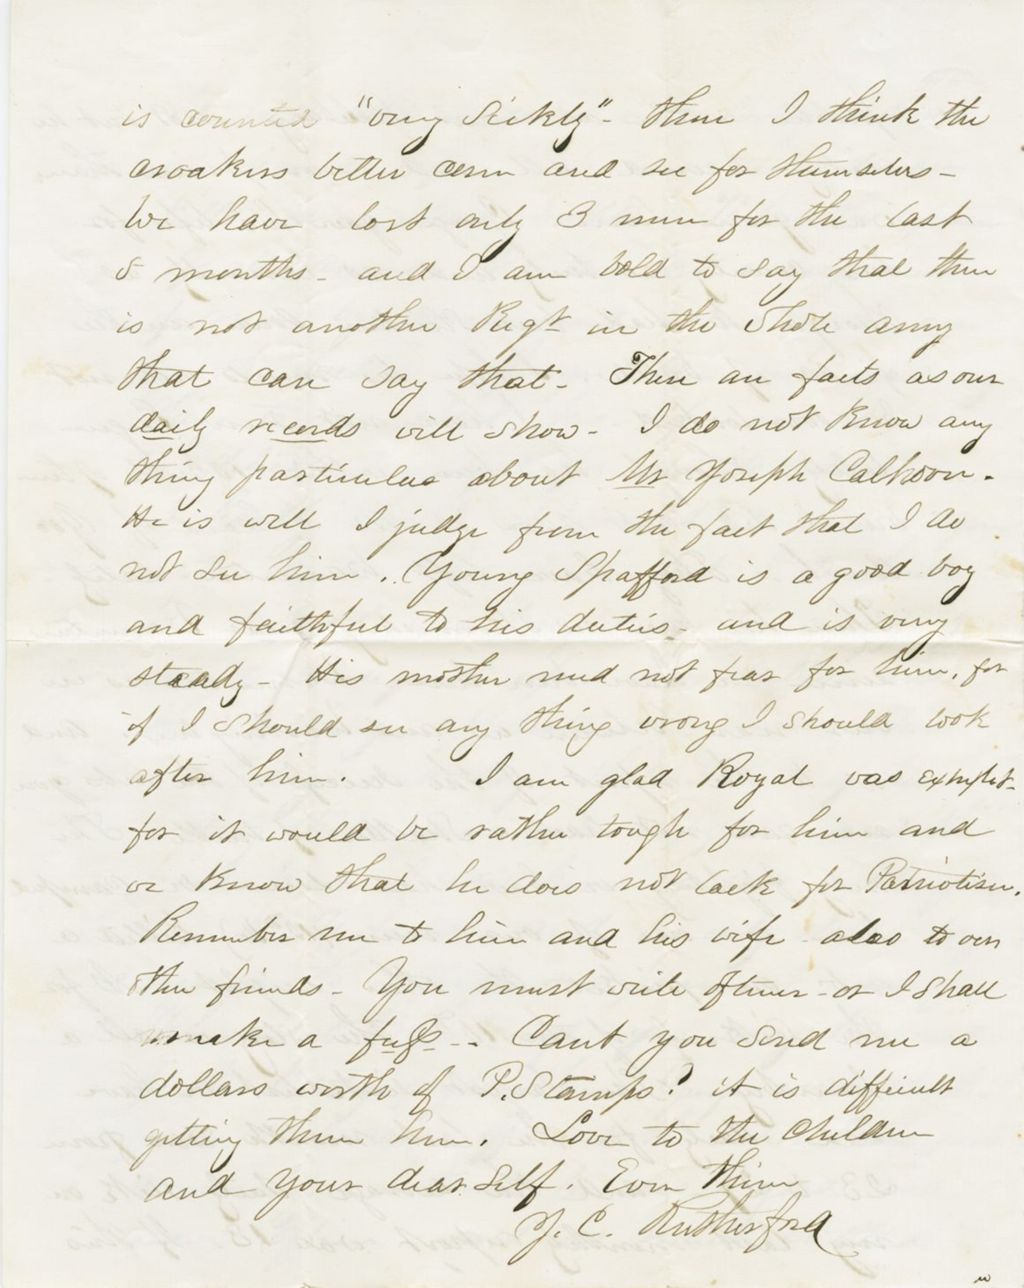 is counted "very Sickly" - then I think the
croakers better come and see for themselves -
We have lost only 3 men for the last
5 months - and I am bold to say that there
is not another Regt in the whole army
that can say that - These are facts as our
daily records will show - I do not know any
thing particular about Mr Joseph Calhoun.
He is well I judge from the fact that I do
not see him. Young Spafford is a good boy
and faithful to his duties - and is very
steady - His mother need not fear for him, for
if I should see any thing wrong I should look
after him. I am glad Royal was exempt -
for it would be rather tough for him and
we know that he does not lack for Patriotism.
Remember me to him and his wife also to our
other friends - You must write oftener - or I shall
make a fuss - - Cant you send me a
dollars worth of P. Stamps? it is difficult
getting them here. Love to the children
and your dear self. Ever Thine
J. C. Rutherford